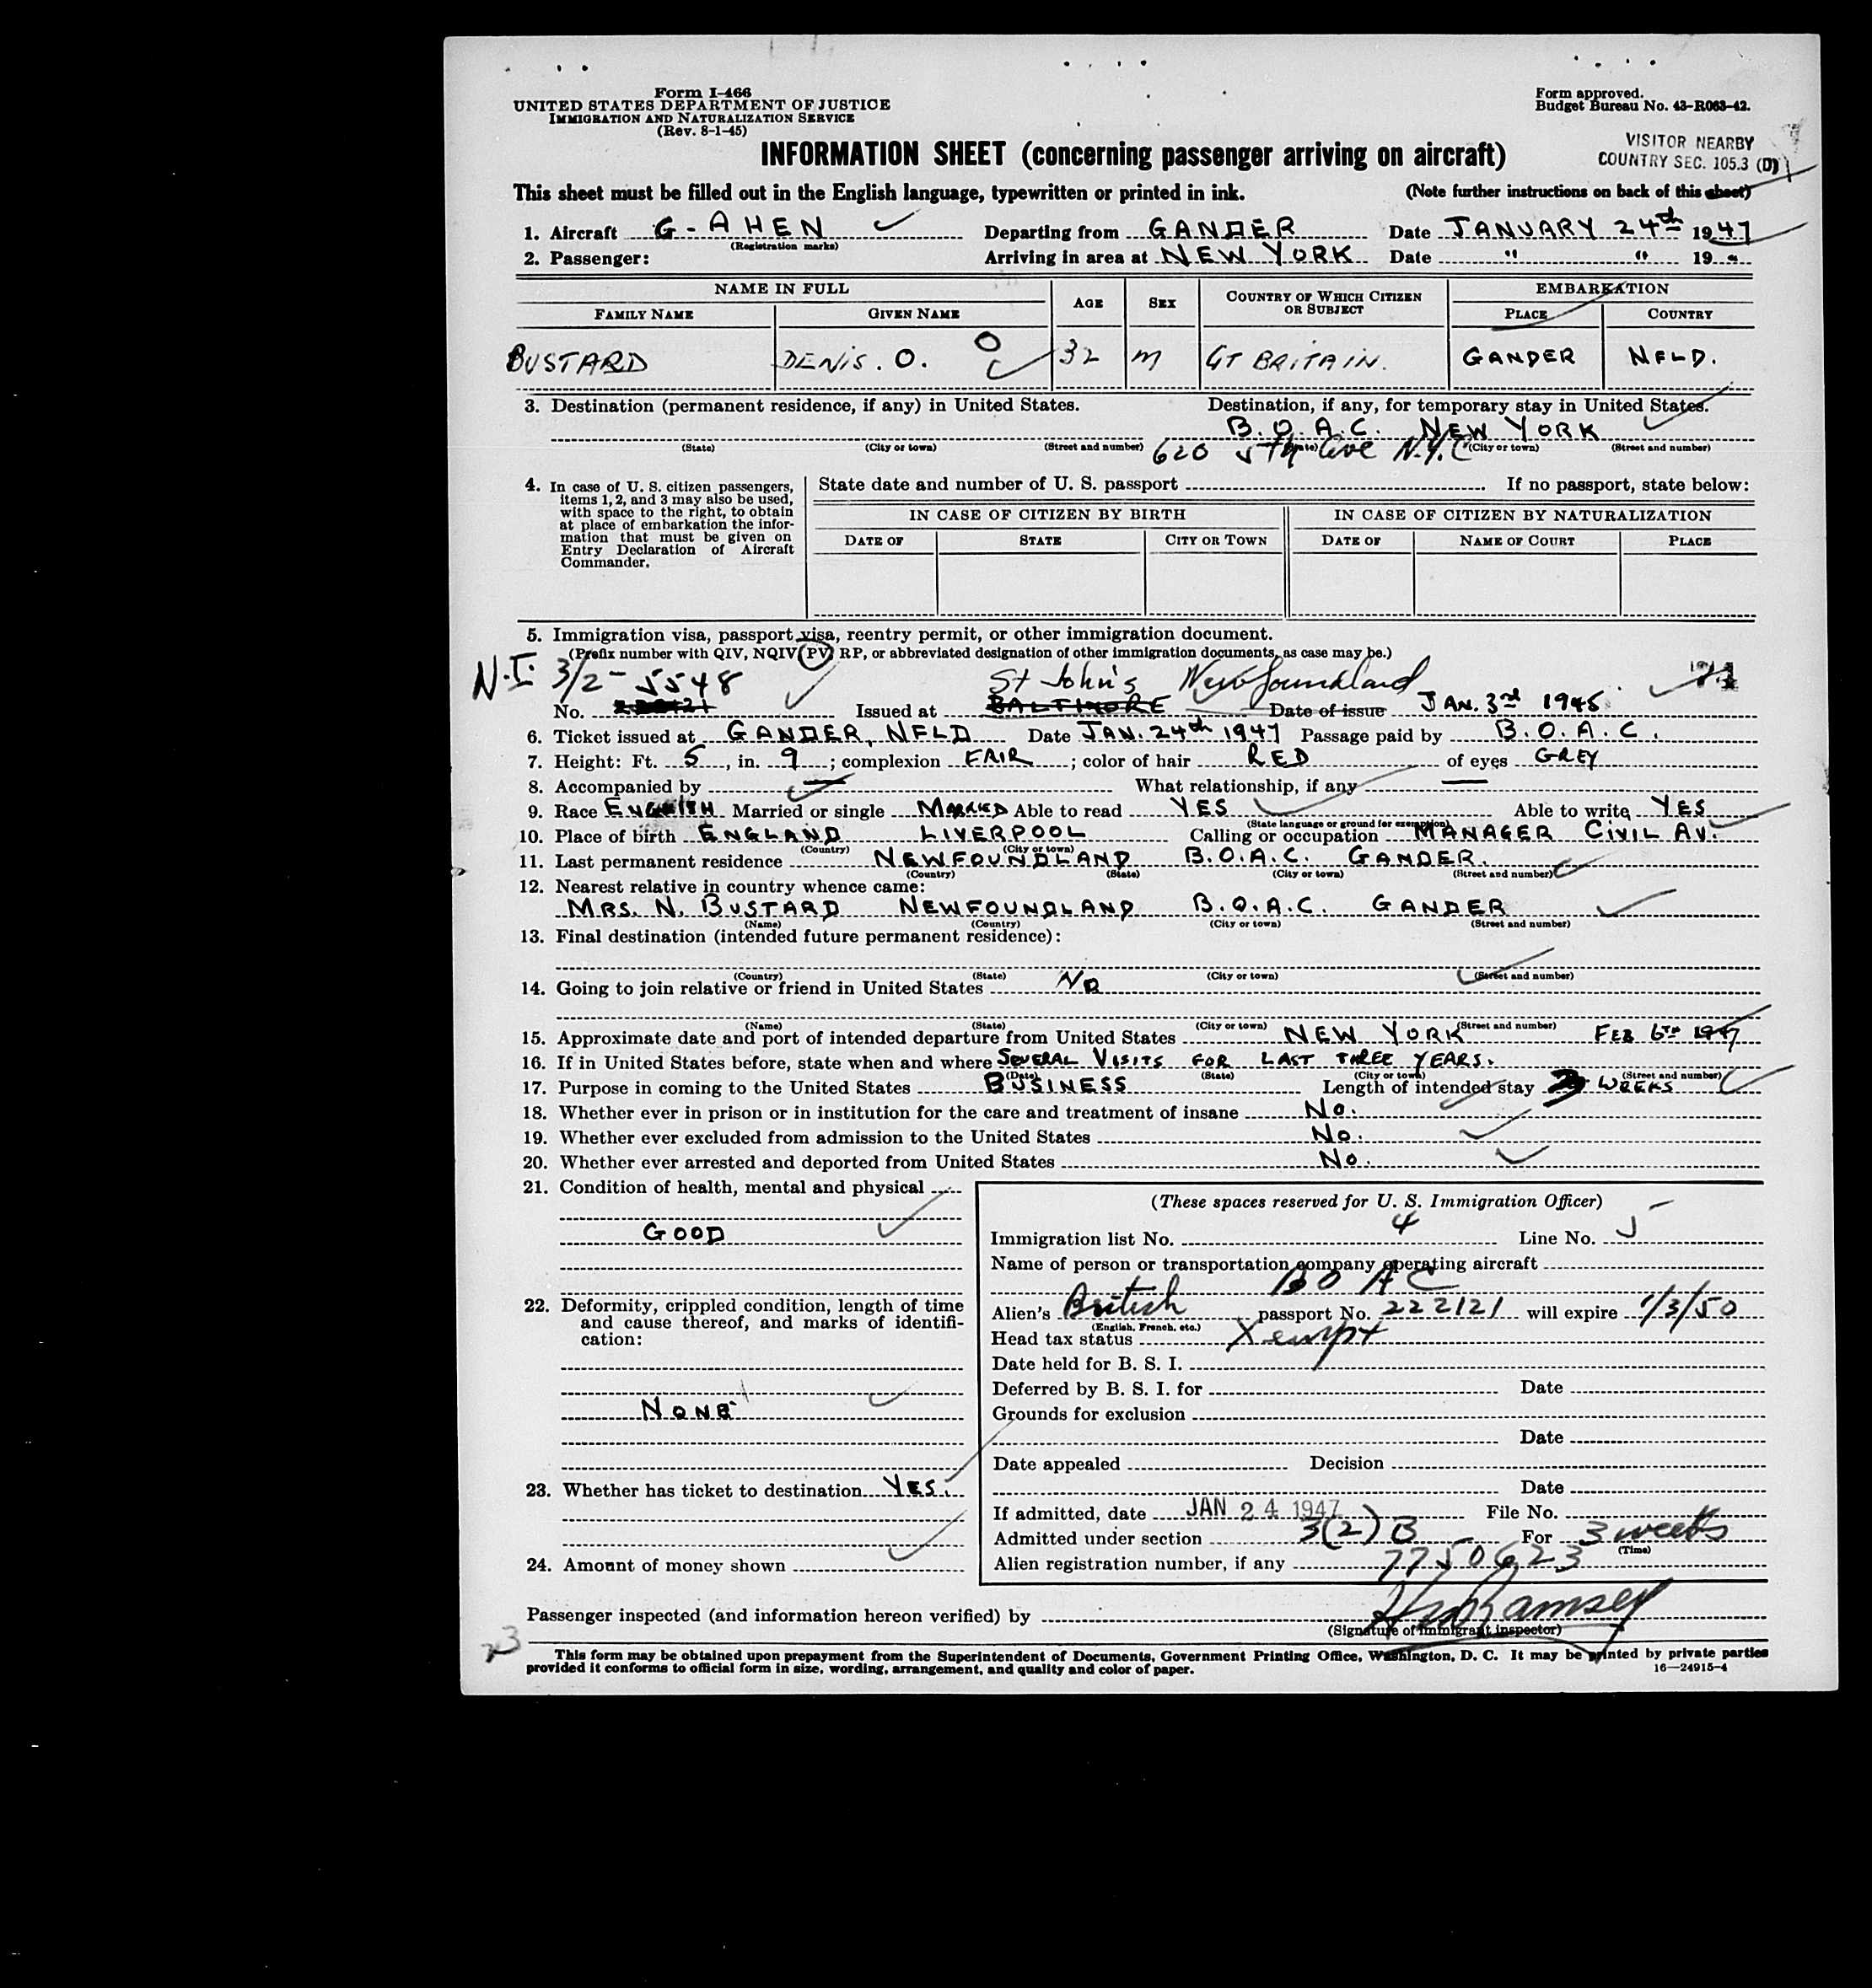 Form I-466
UNITED STATES DEPARTMENT OF JUSTICE
IMMIGRATION AND NATURALIZATION SERVICE
(Rev. 8-1-45)
Form approved.
Budget Bureau No. 43-R063-42.
VISITOR NEARBY
COUNTRY SEC. 105.3 (D)
INFORMATION SHEET (concerning passenger arriving on aircraft)
This sheet must be filled out in the English language, typewritten or printed in ink. (Note further instructions on back of this sheet)
1. Aircraft G-AHEN Departing from GANDER Date JANUARY 24th 1947
(Registration marks)
2. Passenger: Arriving in area at NEW YORK Date " " 19 "
NAME IN FULL AGE SEX COUNTRY OF WHICH CITIZEN OR SUBJECT EMBARKATION
FAMILY NAME GIVEN NAME PLACE COUNTRY
BUSTARD DENIS. O. O 32 M GT BRITAIN. GANDER NFLD.
3. Destination (permanent residence, if any) in United States. Destination, if any, for temporary stay in United States.
B.O.A.C. NEW YORK
(State) (City or town) (Street and number) (State) (City or town) (Street and number)
620 5th Ave N.Y.C
4. In case of U. S. citizen passengers, items 1, 2, and 3 may also be used, with space to the right, to obtain at place of embarkation the information that must be given on Entry Declaration of Aircraft Commander.
State date and number of U. S. passport If no passport, state below:
IN CASE OF CITIZEN BY BIRTH IN CASE OF CITIZEN BY NATURALIZATION
DATE OF STATE CITY OR TOWN DATE OF NAME OF COURT PLACE
5. Immigration visa, passport visa, reentry permit, or other immigration document.
(Prefix number with QIV, NQIV, PV, RP, or abbreviated designation of other immigration documents, as case may be.)
N.I. 3/2-5548 St John's Newfoundland
No. Issued at BALTIMORE Date of issue JAN. 3rd 1945
6. Ticket issued at GANDER, NFLD Date JAN. 24th 1947 Passage paid by B.O.A.C.
7. Height: Ft. 5, in. 9; complexion FAIR; color of hair RED of eyes GREY
8. Accompanied by — What relationship, if any —
9. Race ENGLISH Married or single MARRIED Able to read YES Able to write YES
(State language or ground for exemption)
10. Place of birth ENGLAND LIVERPOOL Calling or occupation MANAGER CIVIL AV.
(Country) (City or town)
11. Last permanent residence NEWFOUNDLAND B.O.A.C. GANDER.
(Country) (State) (City or town) (Street and number)
12. Nearest relative in country whence came:
MRS. N. BUSTARD NEWFOUNDLAND B.O.A.C. GANDER
(Name) (Country) (City or town) (Street and number)
13. Final destination (intended future permanent residence):
(Country) (State) (City or town) (Street and number)
14. Going to join relative or friend in United States NO
(Name) (State) (City or town) (Street and number)
15. Approximate date and port of intended departure from United States NEW YORK FEB 6TH 1947
16. If in United States before, state when and where SEVERAL VISITS FOR LAST THREE YEARS.
(Date) (State) (City or town) (Street and number)
17. Purpose in coming to the United States BUSINESS Length of intended stay 3 WEEKS
18. Whether ever in prison or in institution for the care and treatment of insane No.
19. Whether ever excluded from admission to the United States No.
20. Whether ever arrested and deported from United States No.
21. Condition of health, mental and physical
GOOD
22. Deformity, crippled condition, length of time and cause thereof, and marks of identification:
NONE
23. Whether has ticket to destination YES.
24. Amount of money shown
(These spaces reserved for U. S. Immigration Officer)
Immigration list No. 4 Line No. 5
Name of person or transportation company operating aircraft
B O A C
Alien's British passport No. 222121 will expire 1/3/50
(English, French, etc.)
Head tax status Xempt
Date held for B. S. I.
Deferred by B. S. I. for Date
Grounds for exclusion
Date
Date appealed Decision
Date
If admitted, date JAN 24 1947 File No.
Admitted under section 3(2) B For 3 weeks
(Time)
Alien registration number, if any 7750623
Passenger inspected (and information hereon verified) by Ramsey
(Signature of immigrant inspector)
23
This form may be obtained upon prepayment from the Superintendent of Documents, Government Printing Office, Washington, D. C. It may be printed by private parties
provided it conforms to official form in size, wording, arrangement, and quality and color of paper. 16—24915-4